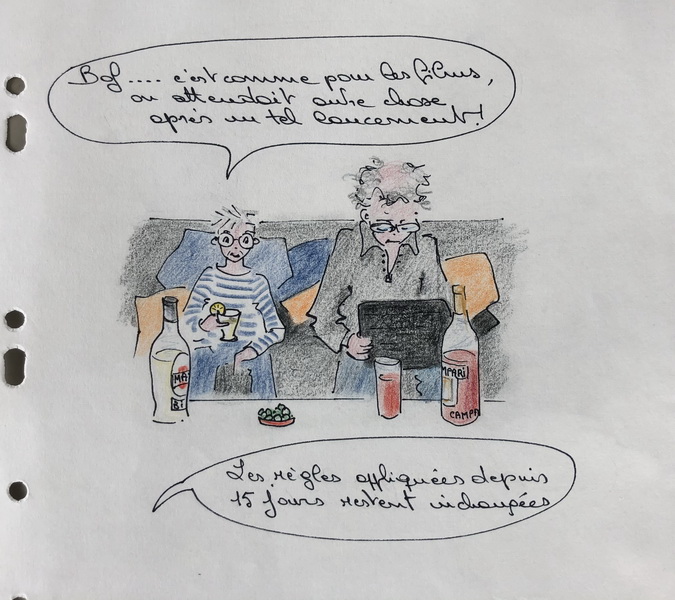 Bof .... c'est comme pour les films,
on attendait autre chose
après un tel lancement !
MA
BI
MPARI
CAMPA
Les règles appliquées depuis
15 jours restent inchangées